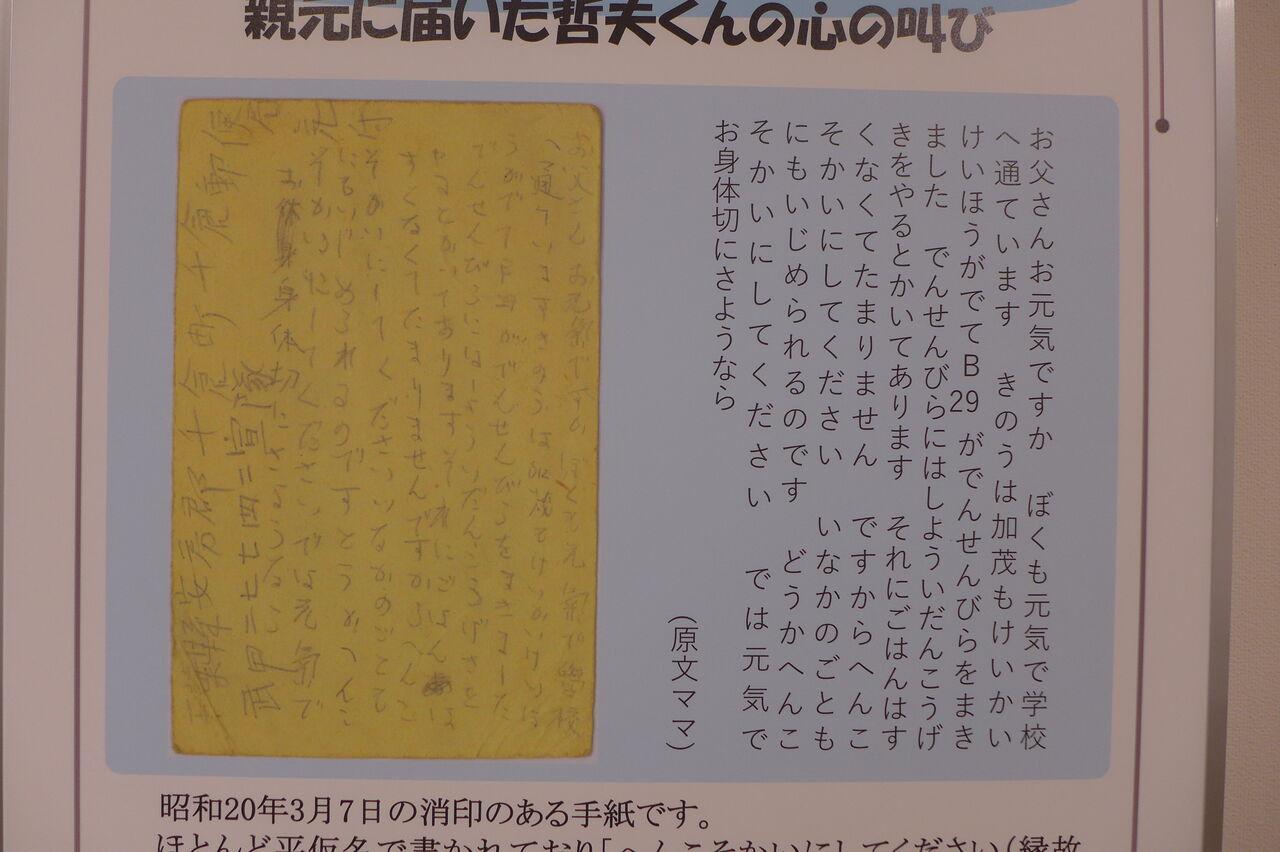 親元に届いた哲夫くんの心の叫び
お父さんお元気ですか　ぼくも元気で学校
へ通ています　きのうは加茂もけいかい
けいほうがでてB29がでんせんびらをまき
ました　でんせんびらにはしよういだんこうげ
きをやるとかいてあります　それにごはんはす
くなくてたまりません　ですからへんこ
そかいにしてください　いなかのごとも
にもいじめられるのです　どうかへんこ
そかいにしてください　では元気で
お身体切にさようなら
(原文ママ)
お父さんお元気ですかぼくも元氣で學校
へ通ていますきのうは加茂もけいかいけいほ
うがでてB29がでんせんびらをまきました
でんせんびらにはしよういだんこうげきを
やるとかいてありますそれにごはんは
すくなくてたまりませんですからへんこ
そかいにしてくださいいなかのごとも
にもいじめられるのですどうかへんこ
そかいにしてくださいでは元氣で
お身体切にさようなら
昭和20年3月7日の消印のある手紙です。
ほとんど平仮名で書かれており「へんこそかいにしてください(縁故